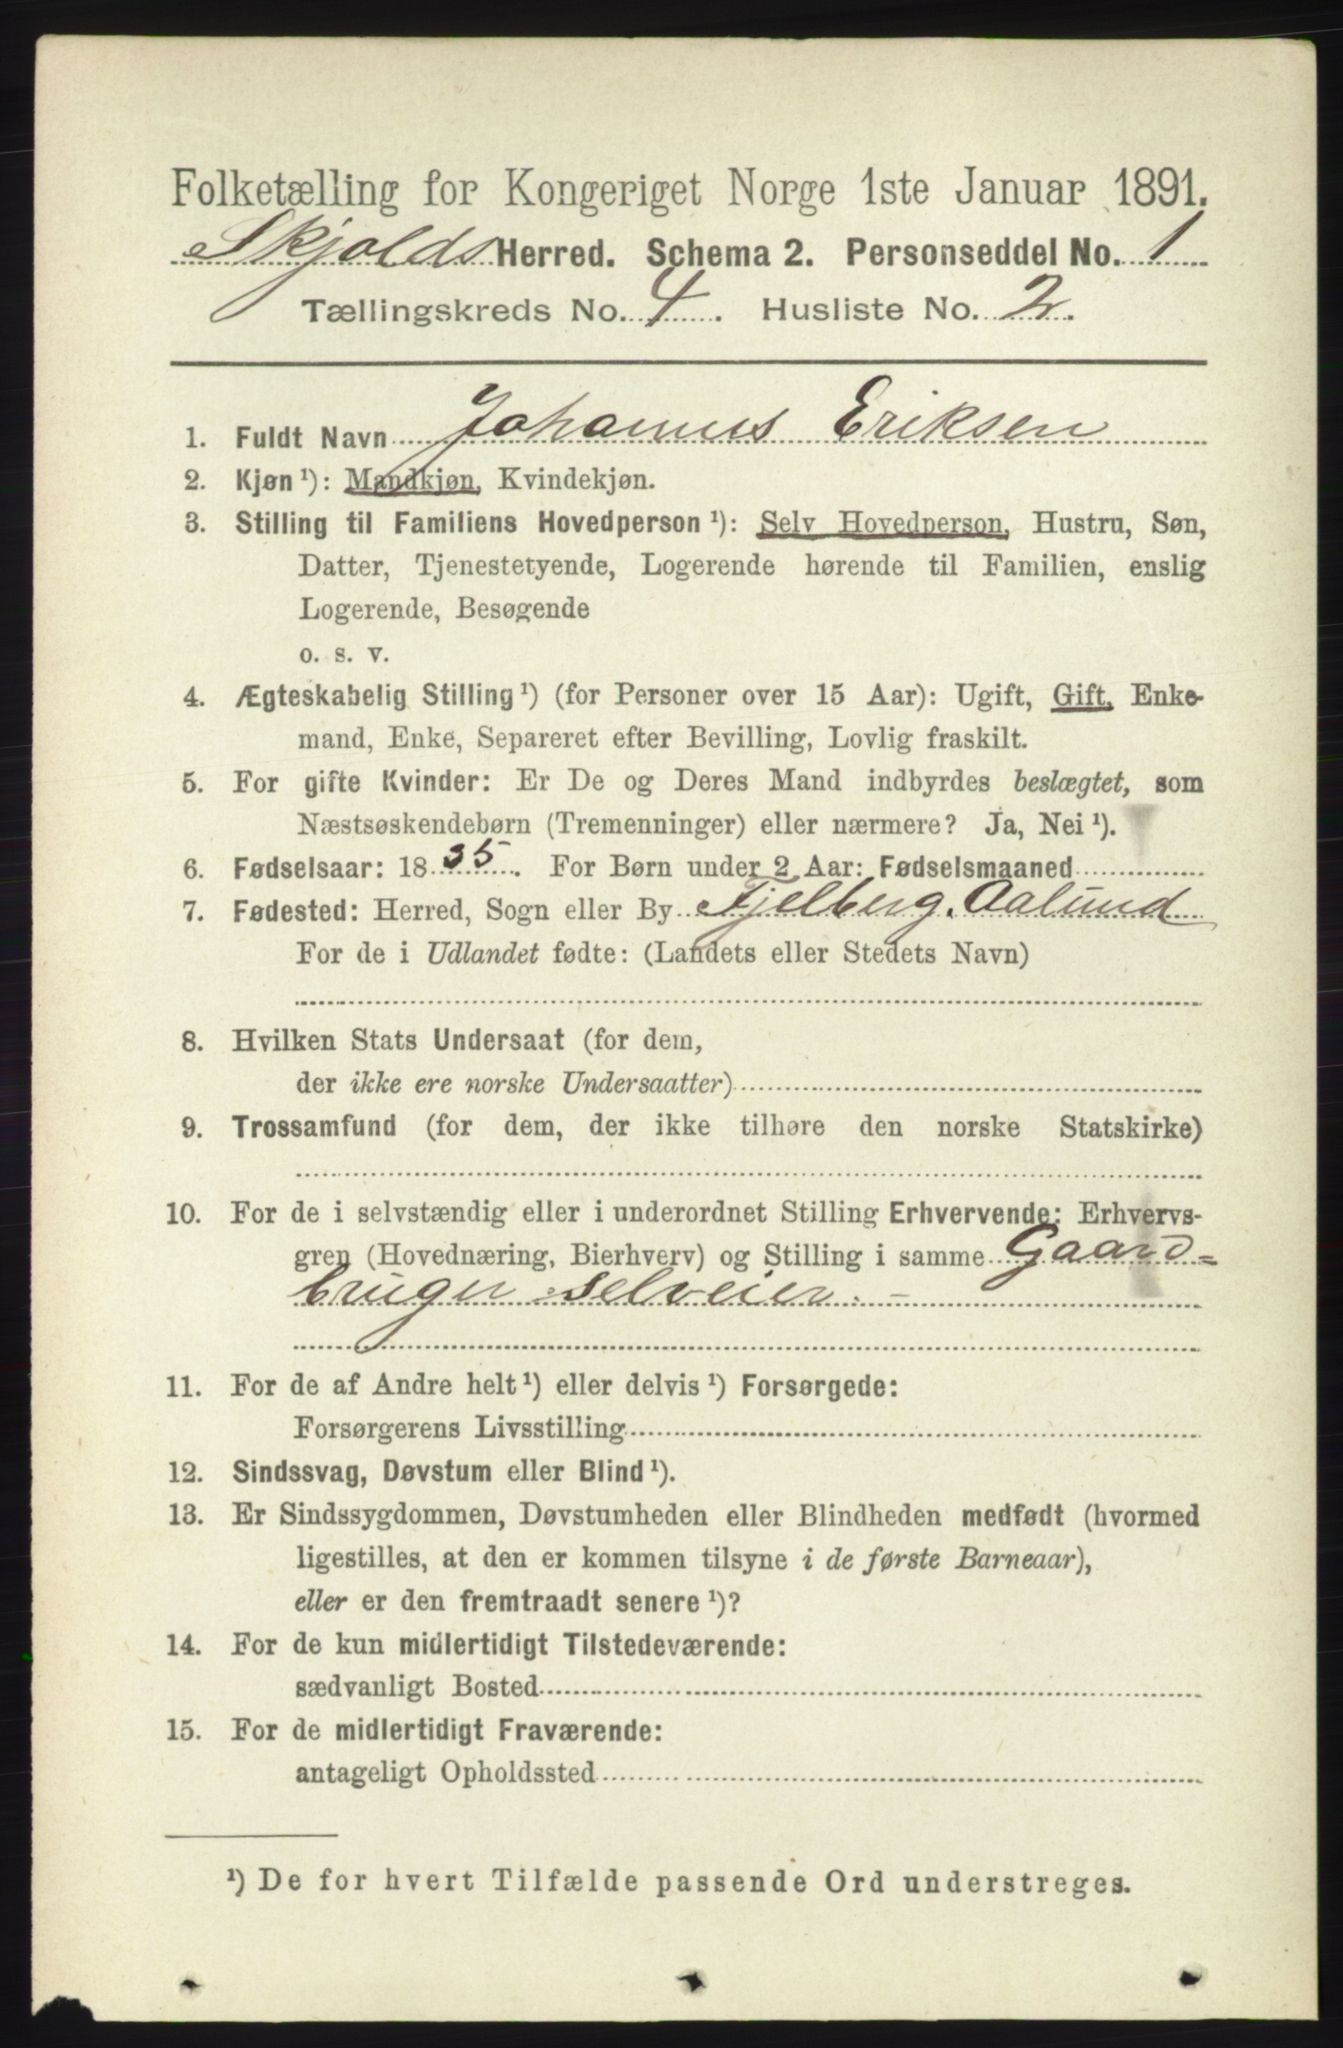 Folketælling for Kongeriget Norge 1ste Januar 1891.
Skjolds Herred. Schema 2. Personseddel No. 1
Tællingskreds No. 4. Husliste No. 2.
1. Fuldt Navn Johannes Eriksen
2. Kjøn ¹): Mandkjøn, Kvindekjøn.
3. Stilling til Familiens Hovedperson ¹): Selv Hovedperson, Hustru, Søn,
Datter, Tjenestetyende, Logerende hørende til Familien, enslig
Logerende, Besøgende
o. s. v.
4. Ægteskabelig Stilling ¹) (for Personer over 15 Aar): Ugift, Gift, Enke-
mand, Enke, Separeret efter Bevilling, Lovlig fraskilt.
5. For gifte Kvinder: Er De og Deres Mand indbyrdes beslægtet, som
Næstsøskendebørn (Tremenninger) eller nærmere? Ja, Nei ¹).
6. Fødselsaar: 1835. For Børn under 2 Aar: Fødselsmaaned
7. Fødested: Herred, Sogn eller By Fjelberg. Aalund
For de i Udlandet fødte: (Landets eller Stedets Navn)
8. Hvilken Stats Undersaat (for dem,
der ikke ere norske Undersaatter)
9. Trossamfund (for dem, der ikke tilhøre den norske Statskirke)
10. For de i selvstændig eller i underordnet Stilling Erhvervende: Erhvervs-
gren (Hovednæring, Bierhverv) og Stilling i samme Gaard-
bruger selveier. –
11. For de af Andre helt ¹) eller delvis ¹) Forsørgede:
Forsørgerens Livsstilling
12. Sindssvag, Døvstum eller Blind ¹).
13. Er Sindssygdommen, Døvstumheden eller Blindheden medfødt (hvormed
ligestilles, at den er kommen tilsyne i de første Barneaar),
eller er den fremtraadt senere ¹)?
14. For de kun midlertidigt Tilstedeværende:
sædvanligt Bosted
15. For de midlertidigt Fraværende:
antageligt Opholdssted
¹) De for hvert Tilfælde passende Ord understreges.